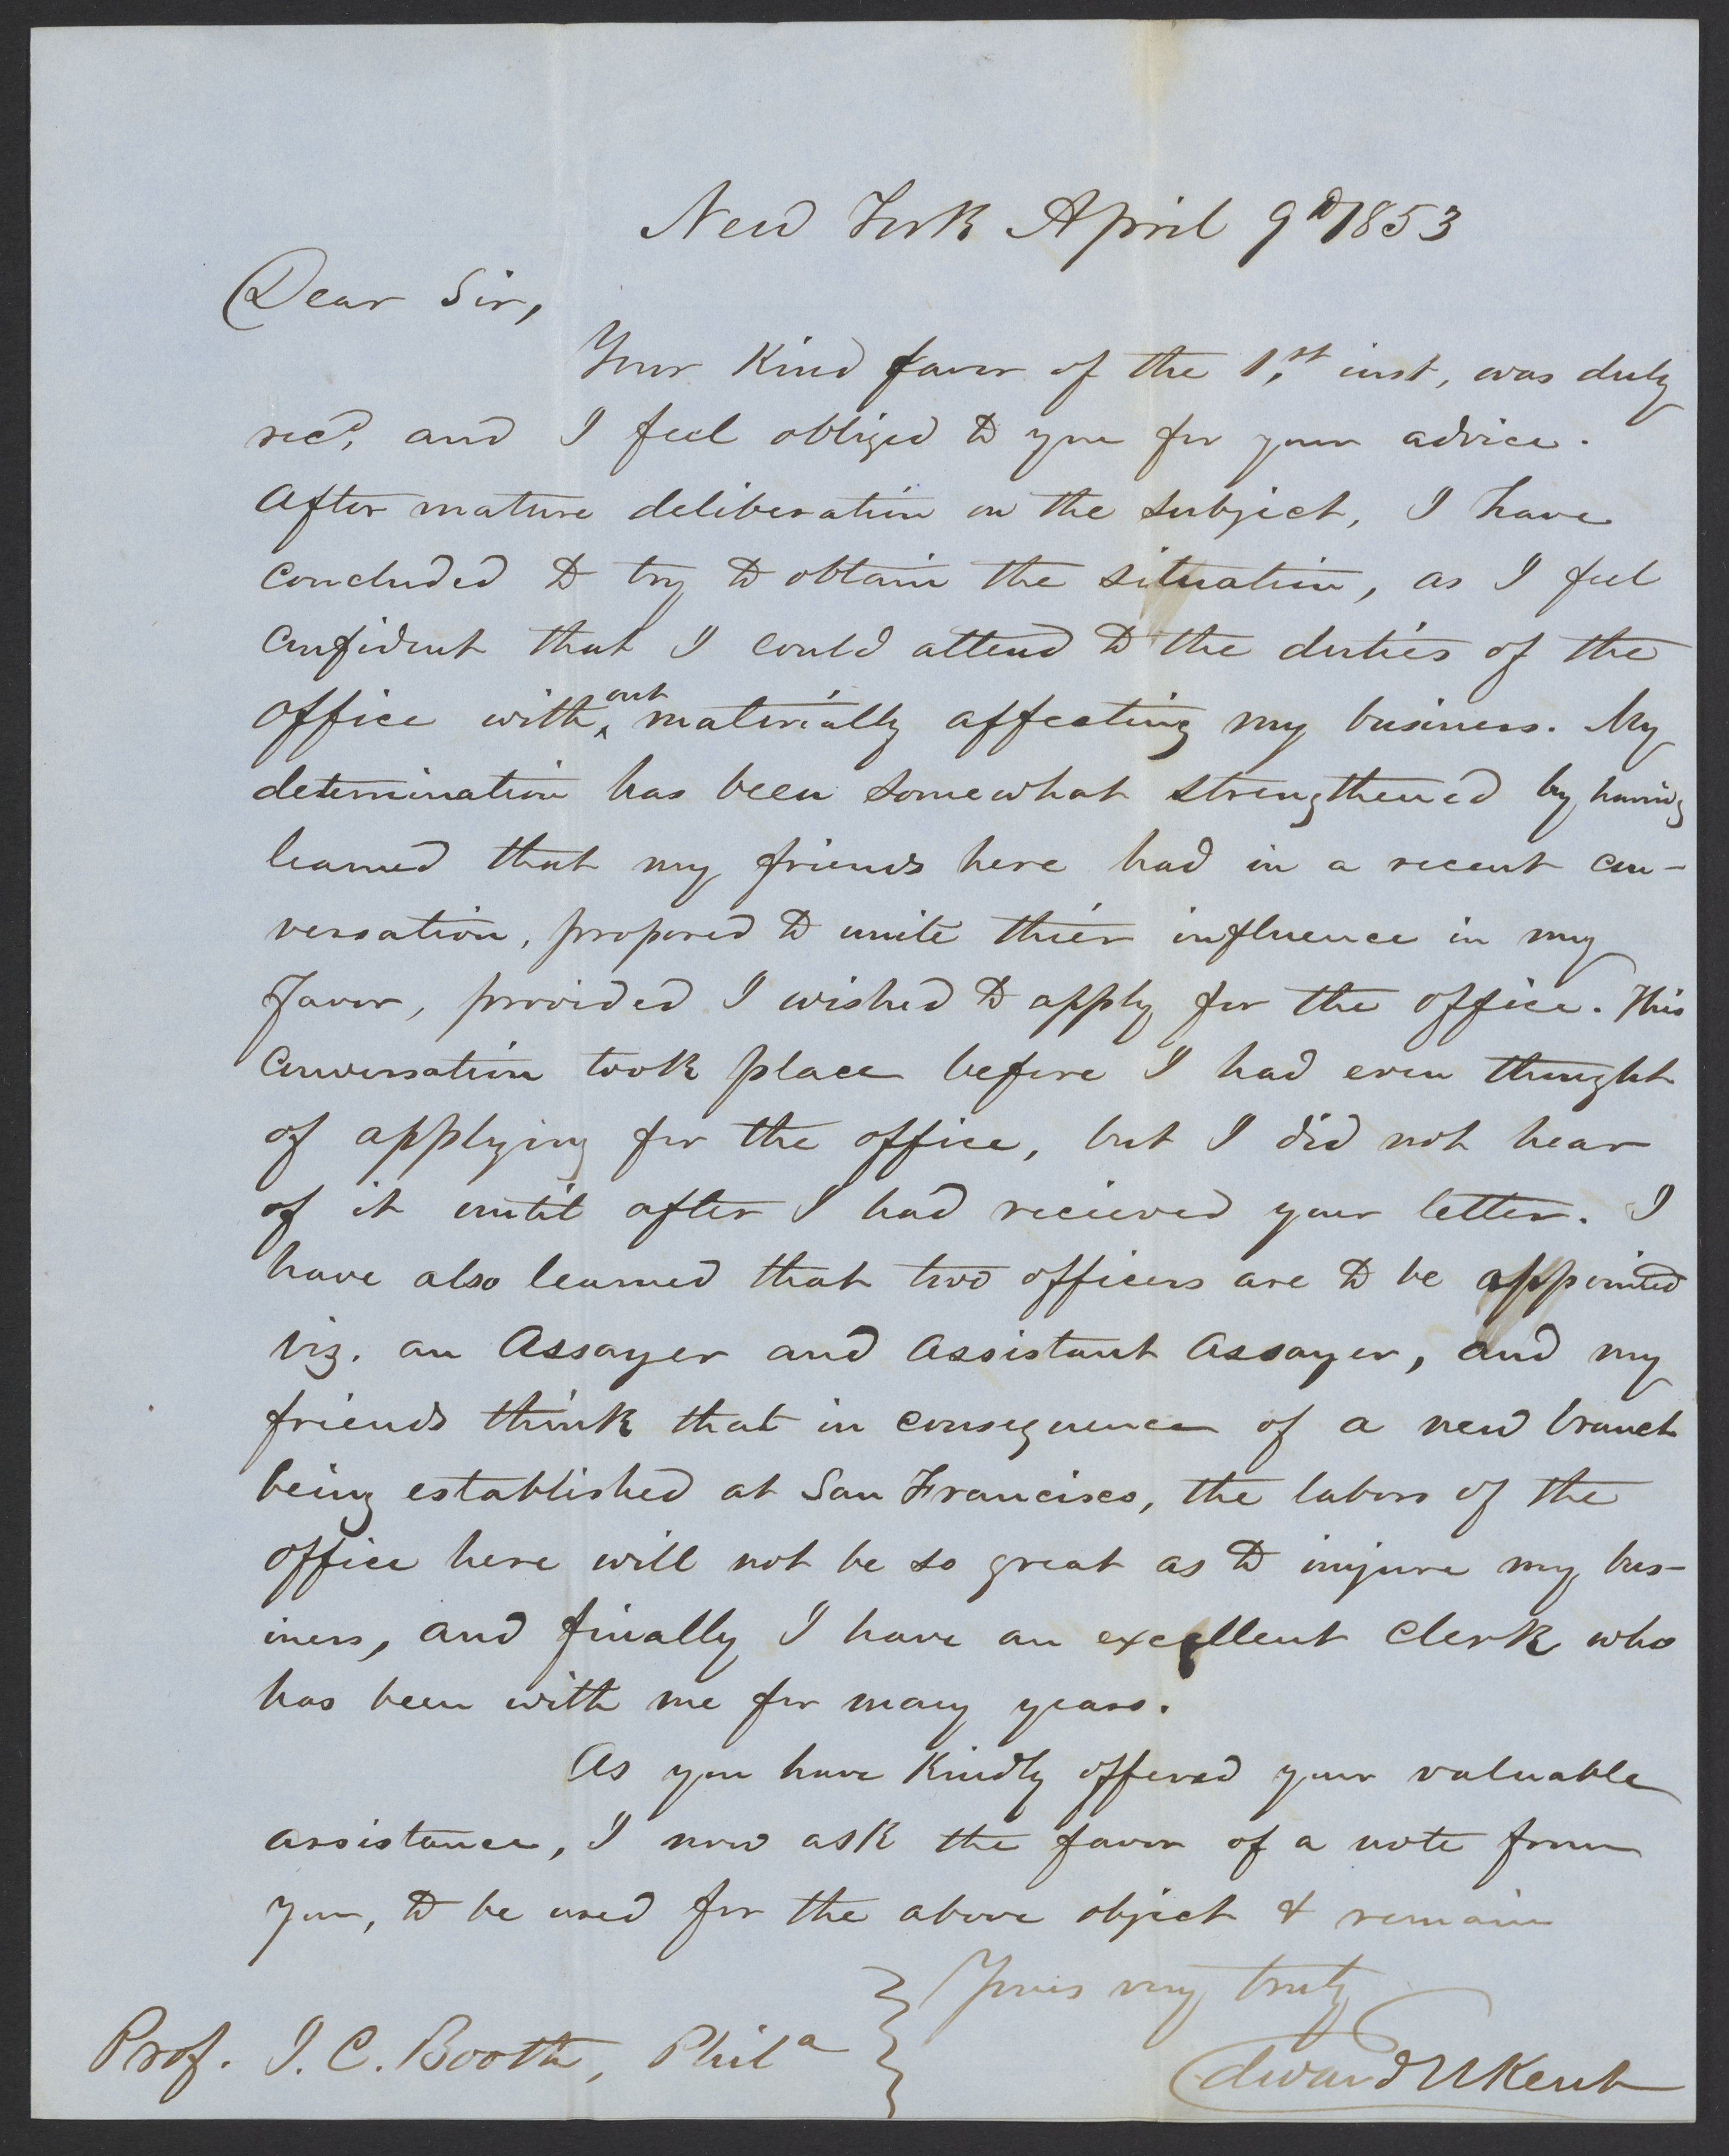 New York April 9th 1853
Dear Sir,
Your Kind favor of the 1st inst, was duly
recd, and I feel obliged to you for your advice.
After mature deliberation on the subject, I have
concluded to try to obtain the situation, as I feel
confident that I could attend to the duties of the
office without materially affecting my business. My
determination has been somewhat strengthened by having
learned that my friends here had in a recent con-
versation, proposed to unite thier influence in my
favor, provided I wished to apply for the office. This
conversation took place before I had even thought
of applying for the office, but I did not hear
of it until after I had recieved your letter. I
have also learned that two officers are to be appointed
viz. an Assayer and Assistant Assayer, and my
friends think that in consequence of a new branch
being established at San Francisco, the labors of the
office here will not be so great as to injure my bus-
iness, and finally I have an excellent Clerk who
has been with me for many years.
As you have Kindly offered your valuable
assistance, I now ask the favor of a note from
you, to be used for the above object & remain
Yours very truly
Edward N Kent
Prof. J. C. Booth, Phila